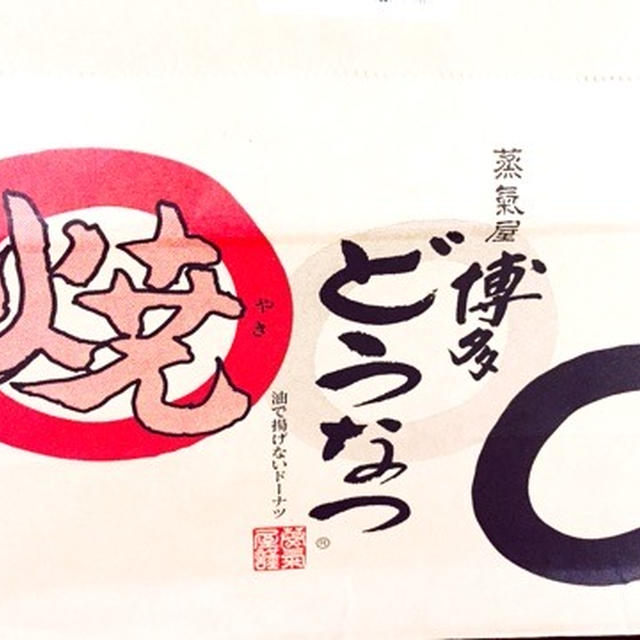 蒸氣屋
博多
どうなつ
®
焼
やき
油で揚げないドーナツ